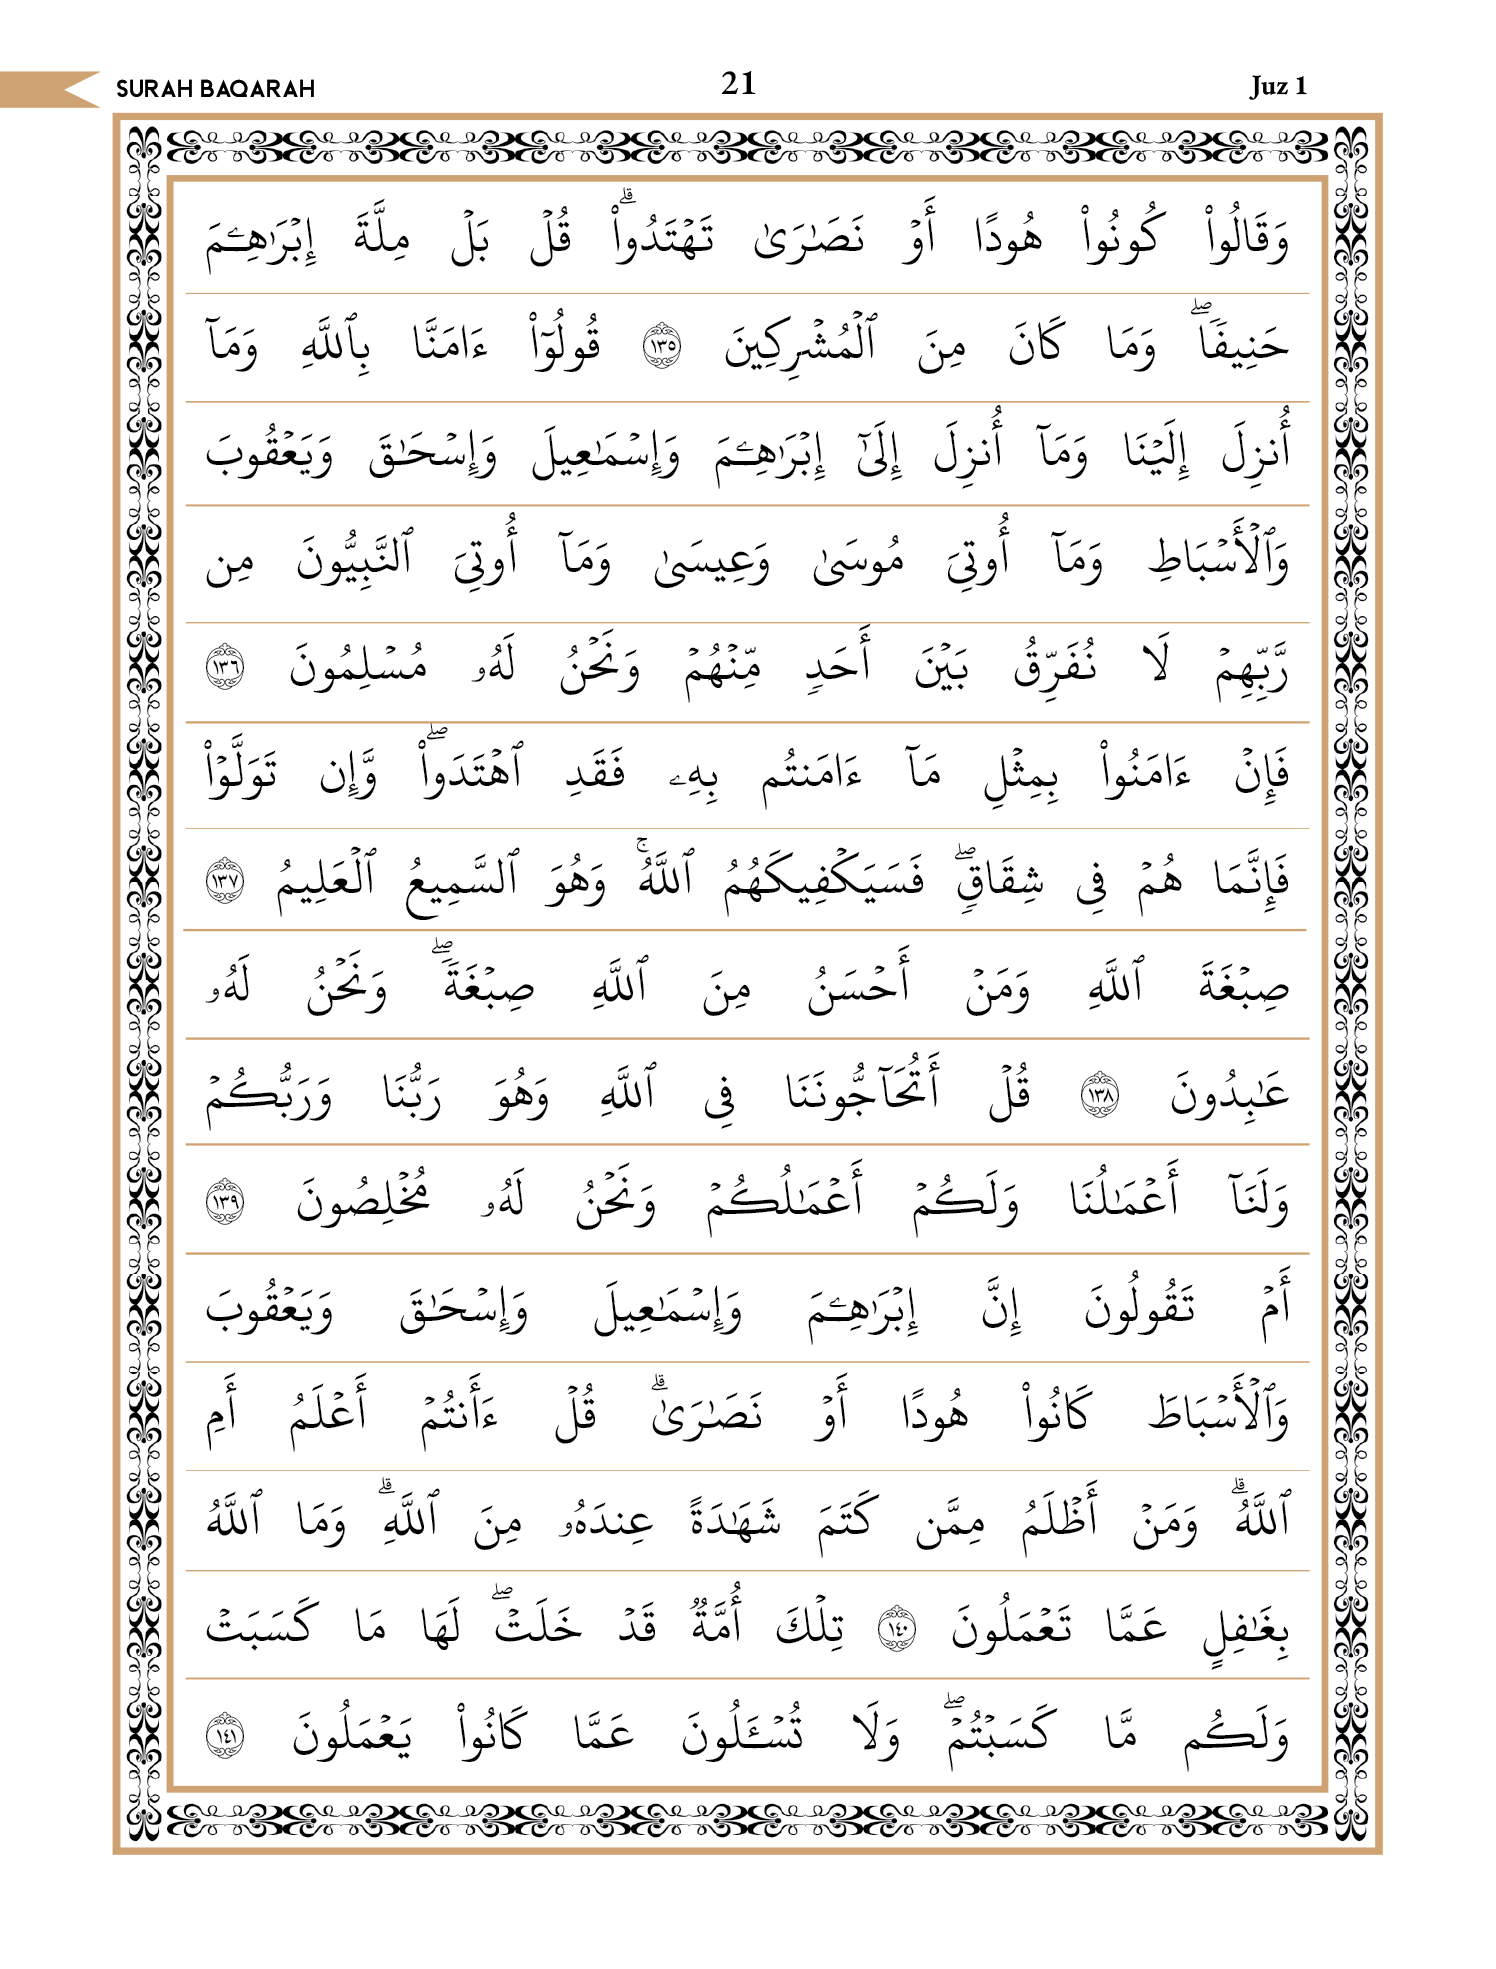 SURAH BAQARAH 21 Juz 1
وَقَالُوا۟ كُونُوا۟ هُودًا أَوْ نَصَـٰرَىٰ تَهْتَدُوا۟ ۗ قُلْ بَلْ مِلَّةَ إِبْرَٰهِـۧمَ
حَنِيفًا ۖ وَمَا كَانَ مِنَ ٱلْمُشْرِكِينَ ١٣٥ قُولُوٓا۟ ءَامَنَّا بِٱللَّهِ وَمَآ
أُنزِلَ إِلَيْنَا وَمَآ أُنزِلَ إِلَىٰٓ إِبْرَٰهِـۧمَ وَإِسْمَـٰعِيلَ وَإِسْحَـٰقَ وَيَعْقُوبَ
وَٱلْأَسْبَاطِ وَمَآ أُوتِىَ مُوسَىٰ وَعِيسَىٰ وَمَآ أُوتِىَ ٱلنَّبِيُّونَ مِن
رَّبِّهِمْ لَا نُفَرِّقُ بَيْنَ أَحَدٍ مِّنْهُمْ وَنَحْنُ لَهُۥ مُسْلِمُونَ ١٣٦
فَإِنْ ءَامَنُوا۟ بِمِثْلِ مَآ ءَامَنتُم بِهِۦ فَقَدِ ٱهْتَدَوا۟ ۖ وَّإِن تَوَلَّوْا۟
فَإِنَّمَا هُمْ فِى شِقَاقٍ ۖ فَسَيَكْفِيكَهُمُ ٱللَّهُ ۚ وَهُوَ ٱلسَّمِيعُ ٱلْعَلِيمُ ١٣٧
صِبْغَةَ ٱللَّهِ وَمَنْ أَحْسَنُ مِنَ ٱللَّهِ صِبْغَةً ۖ وَنَحْنُ لَهُۥ
عَـٰبِدُونَ ١٣٨ قُلْ أَتُحَآجُّونَنَا فِى ٱللَّهِ وَهُوَ رَبُّنَا وَرَبُّكُمْ
وَلَنَآ أَعْمَـٰلُنَا وَلَكُمْ أَعْمَـٰلُكُمْ وَنَحْنُ لَهُۥ مُخْلِصُونَ ١٣٩
أَمْ تَقُولُونَ إِنَّ إِبْرَٰهِـۧمَ وَإِسْمَـٰعِيلَ وَإِسْحَـٰقَ وَيَعْقُوبَ
وَٱلْأَسْبَاطَ كَانُوا۟ هُودًا أَوْ نَصَـٰرَىٰ ۗ قُلْ ءَأَنتُمْ أَعْلَمُ أَمِ
ٱللَّهُ ۗ وَمَنْ أَظْلَمُ مِمَّن كَتَمَ شَهَـٰدَةً عِندَهُۥ مِنَ ٱللَّهِ ۗ وَمَا ٱللَّهُ
بِغَـٰفِلٍ عَمَّا تَعْمَلُونَ ١٤٠ تِلْكَ أُمَّةٌ قَدْ خَلَتْ ۖ لَهَا مَا كَسَبَتْ
وَلَكُم مَّا كَسَبْتُمْ ۖ وَلَا تُسْـَٔلُونَ عَمَّا كَانُوا۟ يَعْمَلُونَ ١٤١